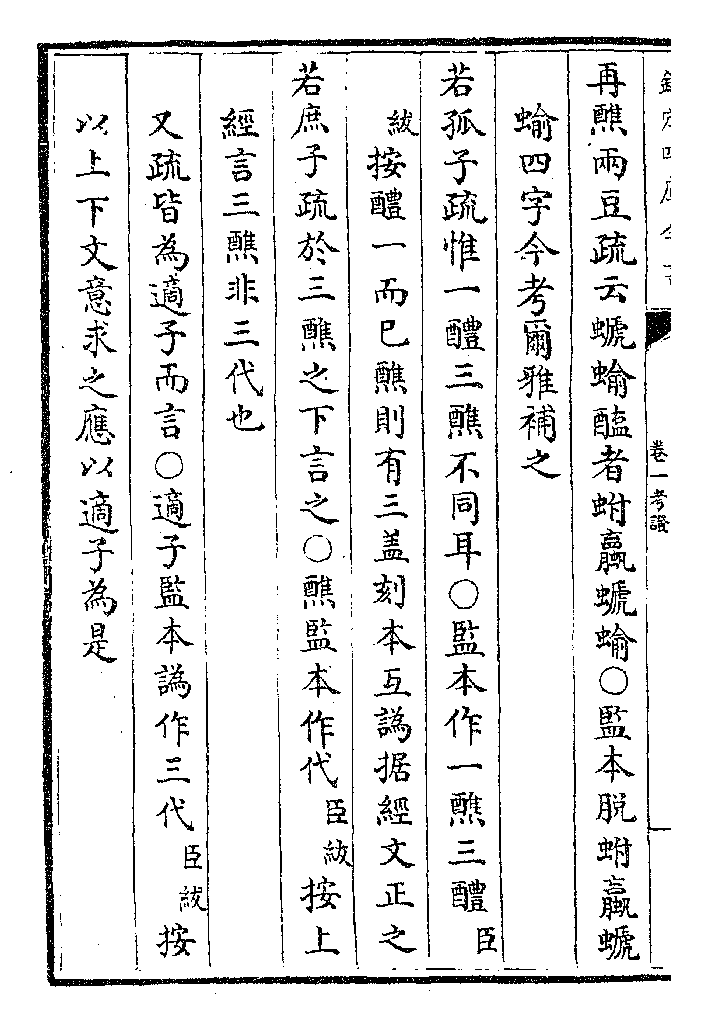 欽定四庫全書
卷一考證
再醮兩豆疏云螔蝓醢者蚹蠃螔蝓○監本脫蚹蠃螔
蝓四字今考爾雅補之
若孤子疏惟一醴三醮不同耳○監本作一醮三醴臣
紱按醴一而已醮則有三盖刻本互譌据經文正之
若庶子疏於三醮之下言之○醮監本作代臣紱按上
經言三醮非三代也
又疏皆為適子而言○適子監本譌作三代臣紱按
以上下文意求之應以適子為是